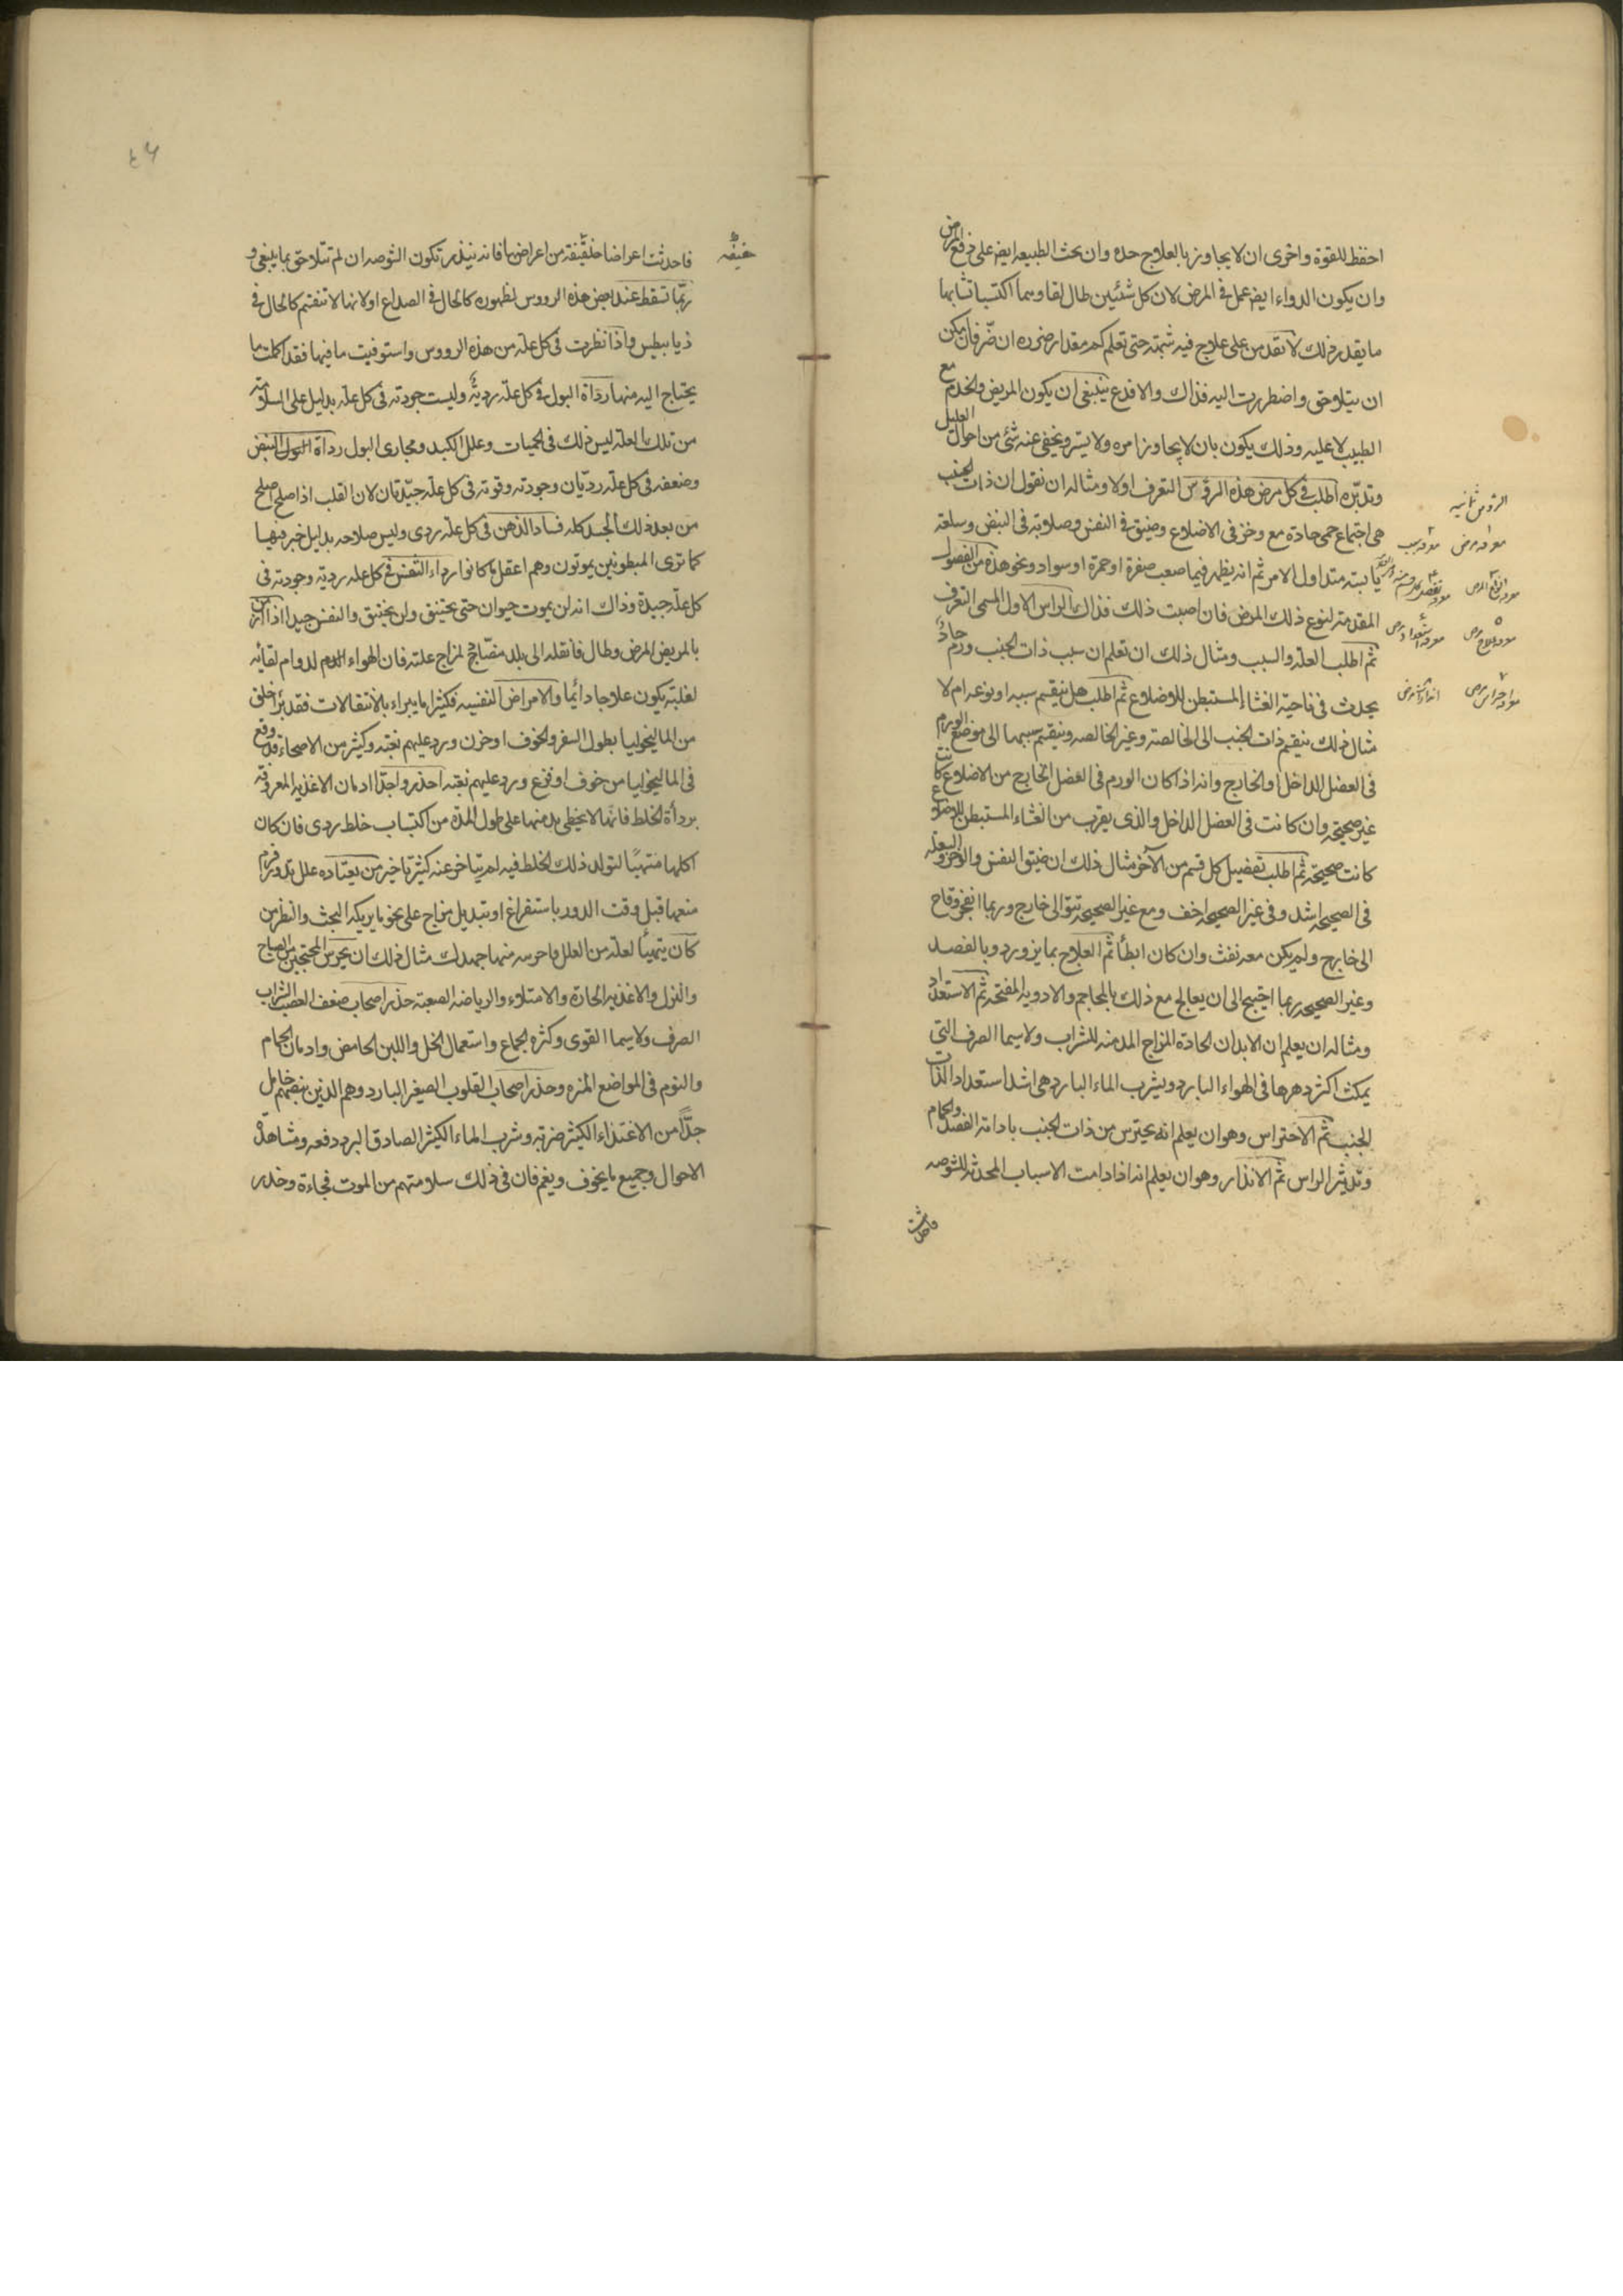 احفظ للقوة واحرى ان لا يجاوز بالعلاج حده وان بحث الطبيعه ايضا على دفع المرض
وان يكون الدواء ايضا عمل فى المرض لان كل شئين طال لقاوهما اكتسبا تشابها
ما يقدر ذلك لا تقدمن على علاج فيه شمته حتى تعلم كم مقدار ضرره ان ضر فان امكن
ان يتلاحق واضطررت اليه فذاك والا فدع ينبغى ان يكون المريض والخدم مع
الطبيب لا عليه وذلك يكون بان لا يجاوز امره ولا يستر ويخفى عنه شئ من احوال العليل
وتدبره اطلب فى كل مرض هذه الروس التعرف اولا ومثاله ان نقول ان ذات الجنب
هى اجتماع حمى حادة مع وخز فى الاضلاع وضيق فى النفس وصلابة فى النبض وسلعة
يابسة منذ اول الامر ثم انه يظهر فيما صعب صفرة او حمرة او سواد ونحو هذه من الفصول
المقدمة لنوع ذلك المرض فان اصبت ذلك فذاك الراس الاول المسمى التعرف
ثم اطلب العلة والسبب ومثال ذلك ان تعلم ان سبب ذات الجنب ورم حاد
يحدث فى ناحية الغشاء المستبطن للاضلاع ثم اطلب هل ينقسم سببه او نوعه ام لا
مثال ذلك ينقسم ذات الجنب الى الخالصة وغير الخالصه وينقسم سببهما الى موضع الورم
فى العضل الداخل او الخارج وانه اذا كان الورم فى العضل الخارج من الاضلاع كانت
غير صحيحة وان كانت فى العضل الداخل والذى يقرب من الغشاء المستبطن للاضلاع
كانت صحيحة ثم اطلب تفصيل كل قسم من الآخر مثال ذلك ان ضيق النفس والوخز والسعلة
فى الصحيحه اشد وفى غير الصحيحه اخف ومع غير الصحيحه تنتو الى خارج وربما انفجر وقاح
الى خارج ولم يكن معه نفث وان كان ابطأ ثم العلاج بما يزورد وبالفصد
وغير الصحيحه ربما احتيج الى ان يعالج مع ذلك بالمحاجم والادويه المفتحة ثم الاستعداد
ومثاله ان يعلم ان الابدان الحادة المزاج المدمنه للشراب ولا سيما الصرف التى
يمكث اكثر دهرها فى الهواء البارد ويشرب الماء البارد هى اشد استعدادا لذات
الجنب ثم الاحتراس وهو ان يعلم انه يحترس من ذات الجنب بادامة الفصد والحمام
وتدثير الراس ثم الانذار وهو ان يعلم انه اذا دامت الاسباب المحدثه للشوصه
فاحدثت
الروس ثمانيه
معرفه مرض
معرفه سبب
معرفه علاج مرض
معرفه استعداد مرض
معرفه احتراس مرض
انذار مرض
٤٦
خفيفه
فاحدثت اعراضا خفيفة من اعراضها فانه ينذر بتكون الشوصه ان لم تتلاحق بما ينبغى و
ربما تسقط عند بعض هذه الروس لظهوره كالحال فى الصداع او لانها لا تنقسم كالحال فى
ذيابيطس واذا نظرت فى كل علة من هذه الروس واستوفيت ما فيها فقد اكملت ما
يحتاج اليه منها رداة البول فى كل علة ردية وليست جودته فى كل علة بدليل على السلامة
من تلك العلة ليس ذلك فى الحميات وعلل الكبد ومجارى البول رداة النبض
وضعفه فى كل علة رديان وجودته وقوته فى كل علة جيدتان لان القلب اذا صلح اصلح
من بعد ذلك الجسد كله فساد الذهن فى كل علة ردى وليس صلاحه بدليل خير فيها
كما ترى المبطونين يموتون وهم اعقل ما كانوا رداء التنفس فى كل علة ردية وجودته فى
كل علة جيدة وذاك انه لن يموت حيوان حتى يختنق ولن يختنق والنفس جيد اذا ازمن
بالمريض المرض وطال فانقله الى بلد مضاد لمزاج علته فان الهواء لدوام لقائه
لغلبته يكون علاجا دائما والامراض النفسيه فكثيرا ما يبراء بالانتقالات فقد برأ خلق
من الماليخوليا بطول السفر والخوف او حزن ورد عليهم بغتة وكثير من الاصحاء قد وقع
فى الماليخوليا من خوف او فزع ورد عليهم بغتة احذر واجدا ادمان الاغذيه المعروفة
برداة الخلط فانها لا يخطى بدمنها على طول المدة من اكتساب خلط ردى فان كان
اكلها متهيأ لتولد ذلك الخلط فيه لم يتاخر عنه كثير تاخير من يعتاده علل بدور فرم
منعها قبل وقت الدور باستفراغ او تبديل مزاج على نحو ما يريكه البحث والنظر من
كان يتهيأ لعلة من العلل فاحرسه منها جهدك مثال ذلك ان يحرس المحتجبين من الصياح
والنزل والاغذيه الحارة والامتلاء والرياضه الصعبة حذر اصحاب ضعف العصب الشراب
الصرف ولا سيما القوى وكثره الجماع واستعمال الخل واللبن الحامض وادمان الحمام
والنوم فى المواضع النزه وحذر اصحاب القلوب الصغير البارد وهم الذين نبضهم خامل
جدا من الاغتذاء الكثير ضربة وشرب الماء الكثير الصادق البرد دفعه ومشاهدة
الاحوال وجميع ما يخوف ويغم فان فى ذلك سلامتهم من الموت فجاءة وحذر